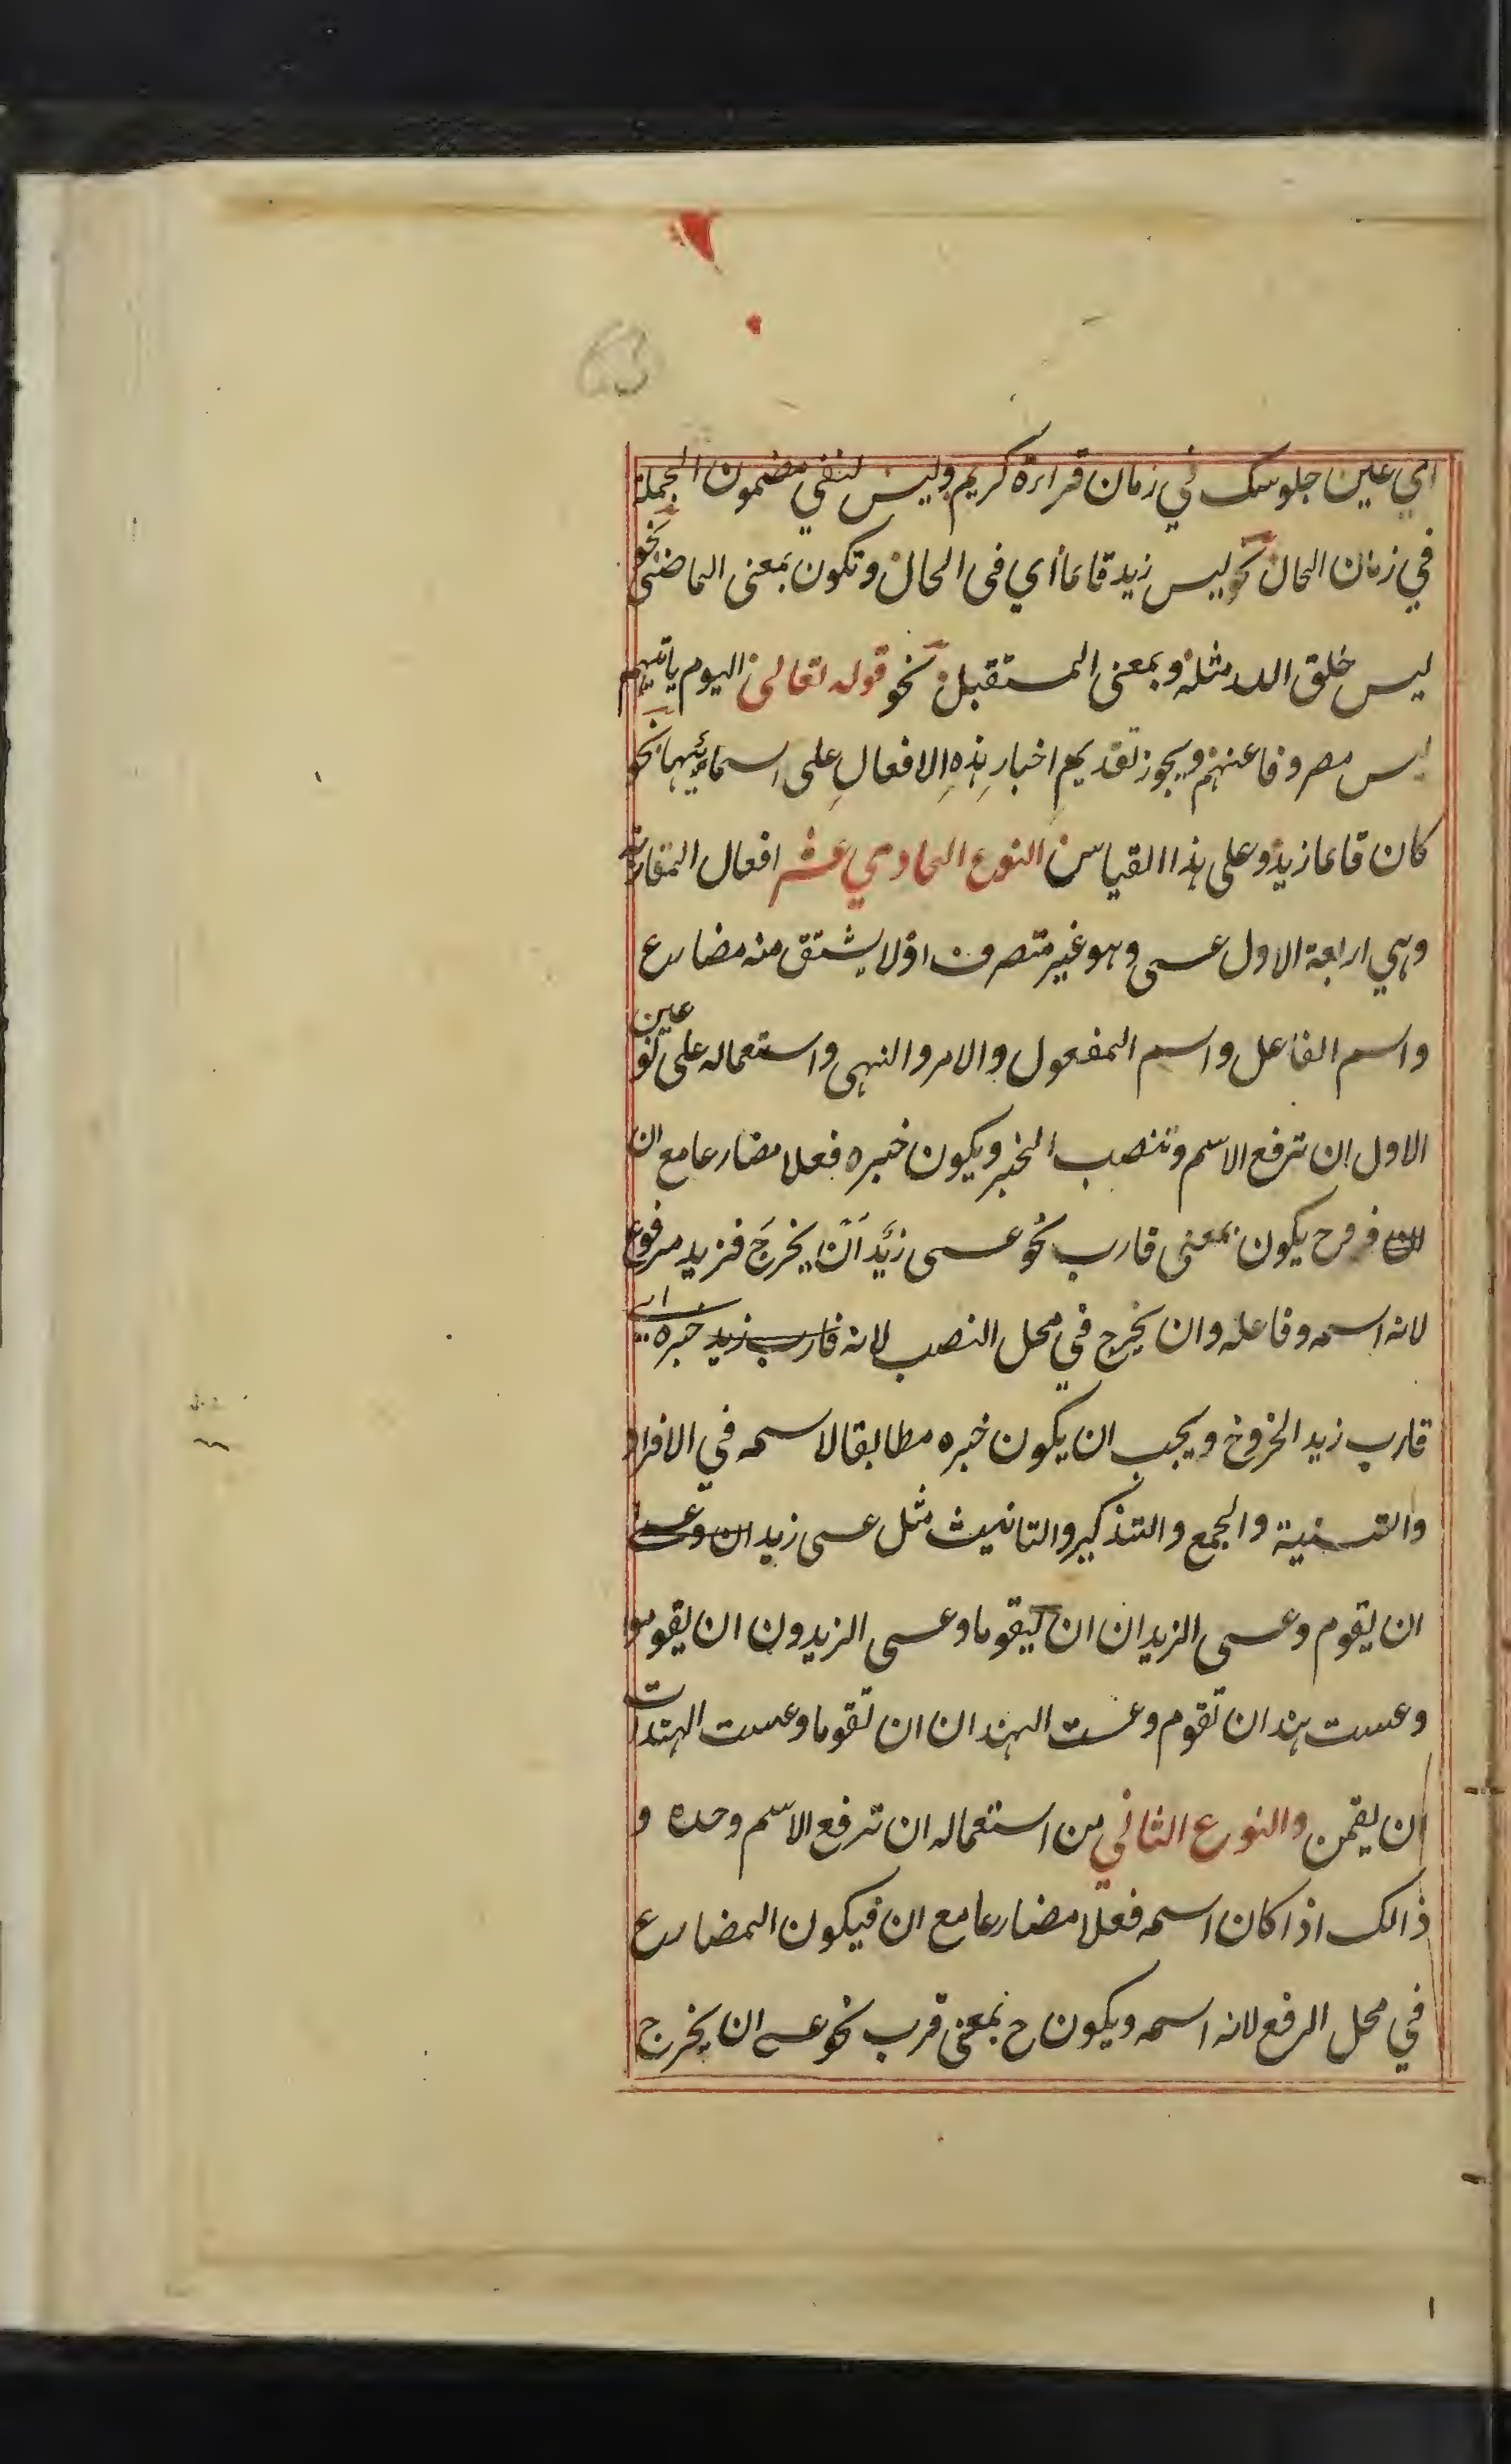 اي عين جلوسك في زمان قراءة كريم وليس لنفي مضمون الجملة
في زمان الحال نحو ليس زيد قائما أي فى الحال وتكون بمعنى الماضى نحو
ليس خلق الله مثله وبمعنى المستقبل نحو قوله تعالى اليوم ياتيهم
ليس مصروفا عنهم ويجوز تقديم اخبارِ هذهِ الافعالِ على اسمائِها نحو
كان قائما زيد وعلى هذا القياس النوع الحادي عشر افعال المقاربة
وهي اربعة الاول عسى وهو غير متصرف اذ لا يشتق منه مضارع
واسم الفاعل واسم المفعول والامر والنهى واستعماله على نوعين
الاول ان ترفع الاسم وتنصب الخبر ويكون خبره فعلا مضارعا مع ان
وح يكون بمعنى قارب نحو عسى زيد ان يخرجَ فزيد مرفوع
لانه اسمه وفاعله وان يخرج في محل النصب لانه قارب زيد خبره اي
قارب زيد الخروج ويجب ان يكون خبره مطابقا لاسمه في الافراد
والتسنية والجمع والتذكير والتانيث مثل عسى زيد ان وعسا
ان يقوم وعسى الزيدان ان يقوما وعسى الزيدون ان يقوموا
وعست هند ان تقوم وعست الهندان ان تقوما وعست الهندات
ان يقمن والنوع الثاني من استعماله ان ترفع الاسم وحده و
ذالك اذا كان اسمه فعلا مضارعا مع ان فيكون المضارع
في محل الرفع لانه اسمه ويكون ح بمعنى قرب نحو عسى ان يخرج